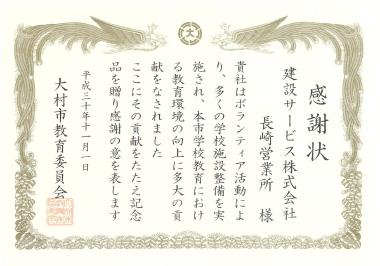 大
感謝状
建設サービス株式会社
長崎営業所 様
貴社はボランティア活動によ
り、多くの学校施設整備を実
施され、本市学校教育におけ
る教育環境の向上に多大の貢
献をなされました
ここにその貢献をたたえ記念
品を贈り感謝の意を表します
平成三十年十一月一日
大村市教育委員会